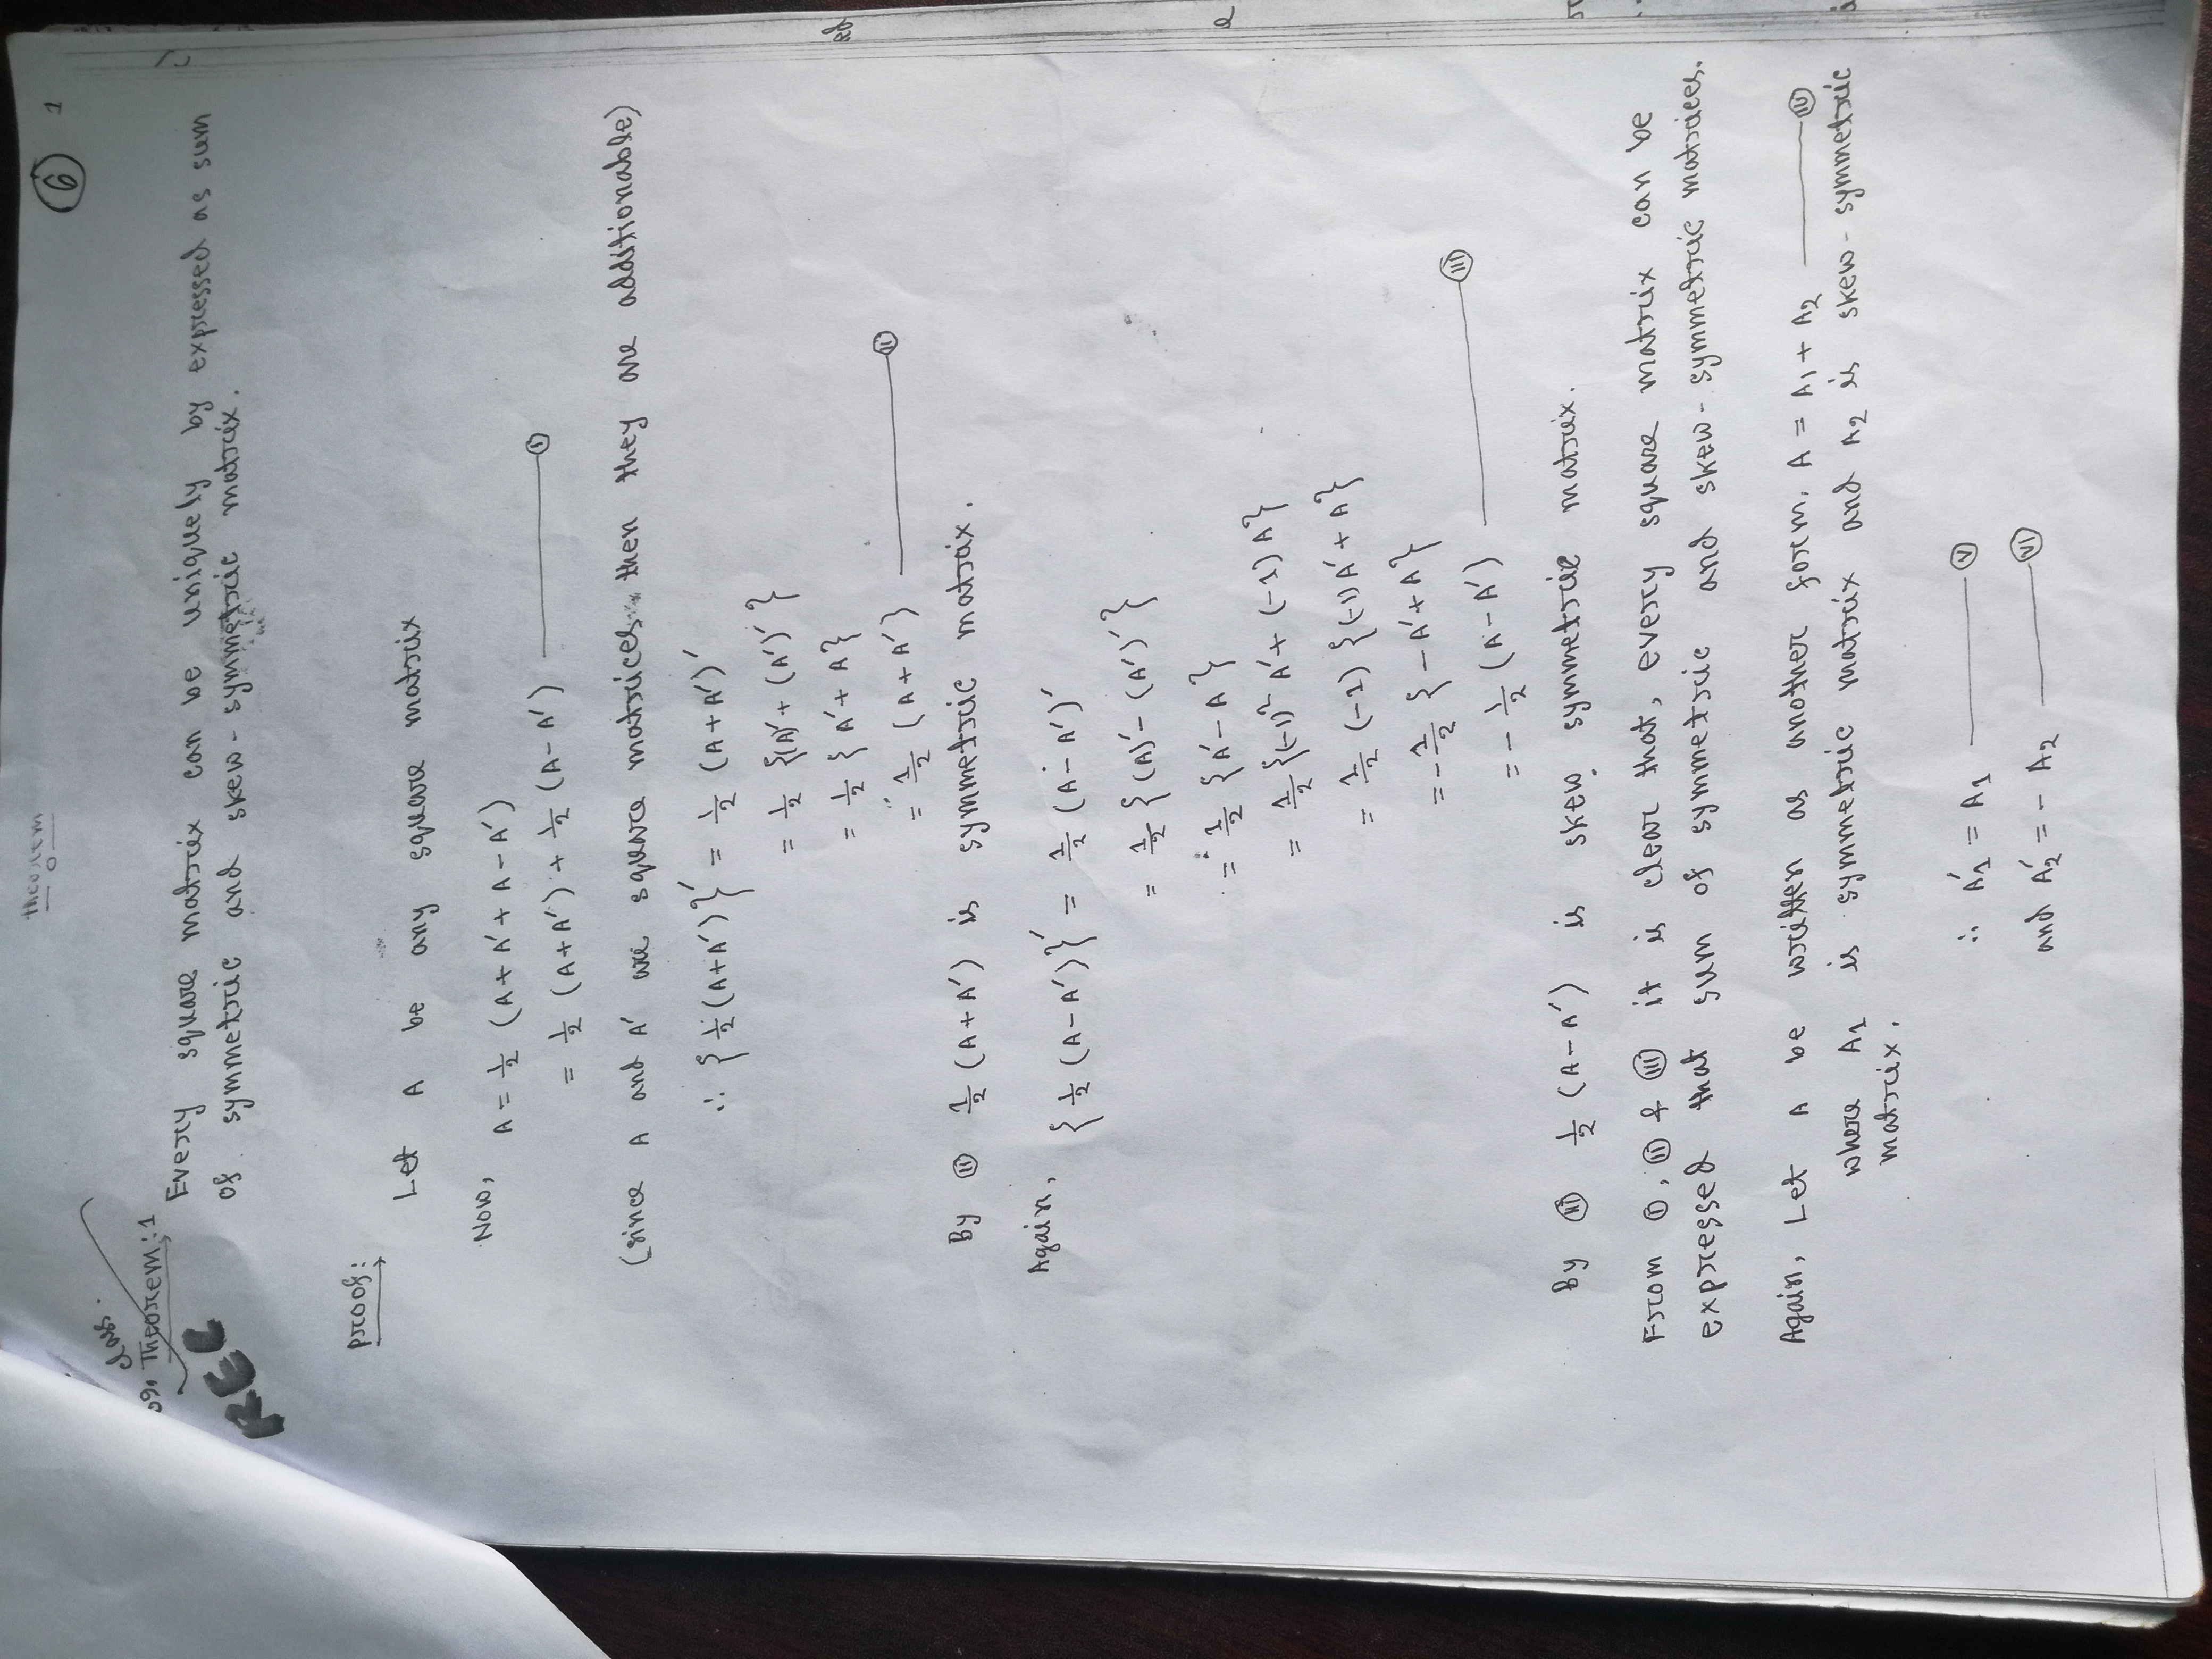 Theorem
6 1
class.
09. Theorem: 1
REC
Every square matrix can be uniquely by expressed as sum
of symmetric and skew-symmetric matrix.
Proof:
Let A be any square matrix
Now,
A = 1/2 (A + A′ + A − A′)
= 1/2 (A+A′) + 1/2 (A − A′) ——— (I)
(since A and A′ are square matrices then they are additionable)
∴ {1/2 (A+A′)}′ = 1/2 (A+A′)′
= 1/2 {(A)′ + (A′)′}
= 1/2 {A′ + A}
= 1/2 (A + A′) ——— (II)
By (II) 1/2 (A + A′) is symmetric matrix.
Again,
{1/2 (A − A′)}′ = 1/2 (A − A′)′
= 1/2 {(A)′ − (A′)′}
= 1/2 {A′ − A}
= 1/2 {(−1)² A′ + (−1) A}
= 1/2 (−1) {(−1)A′ + A}
= − 1/2 {− A′ + A}
= − 1/2 (A − A′) ——— (III)
By (III) 1/2 (A − A′) is skew symmetric matrix.
From (I), (II) & (III) it is clear that, every square matrix can be
expressed that sum of symmetric and skew-symmetric matrices.
Again, Let A be written as another form. A = A₁ + A₂ ——— (IV)
where A₁ is symmetric matrix and A₂ is skew-symmetric
matrix.
∴ A₁′ = A₁ ——— (V)
and A₂′ = − A₂ ——— (VI)